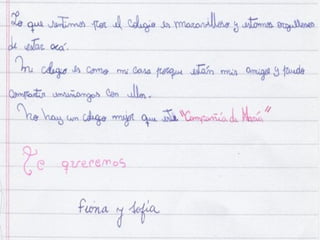 Lo que sentimos por el colegio es maravilloso y estamos orgullosas
de estar acá.
Mi colegio es como mi casa porque están mis amigos y puedo
compartir enseñanzas con ellos.
No hay un colegio mejor que este "Compañía de María"
Te queremos
Fiona y Sofía